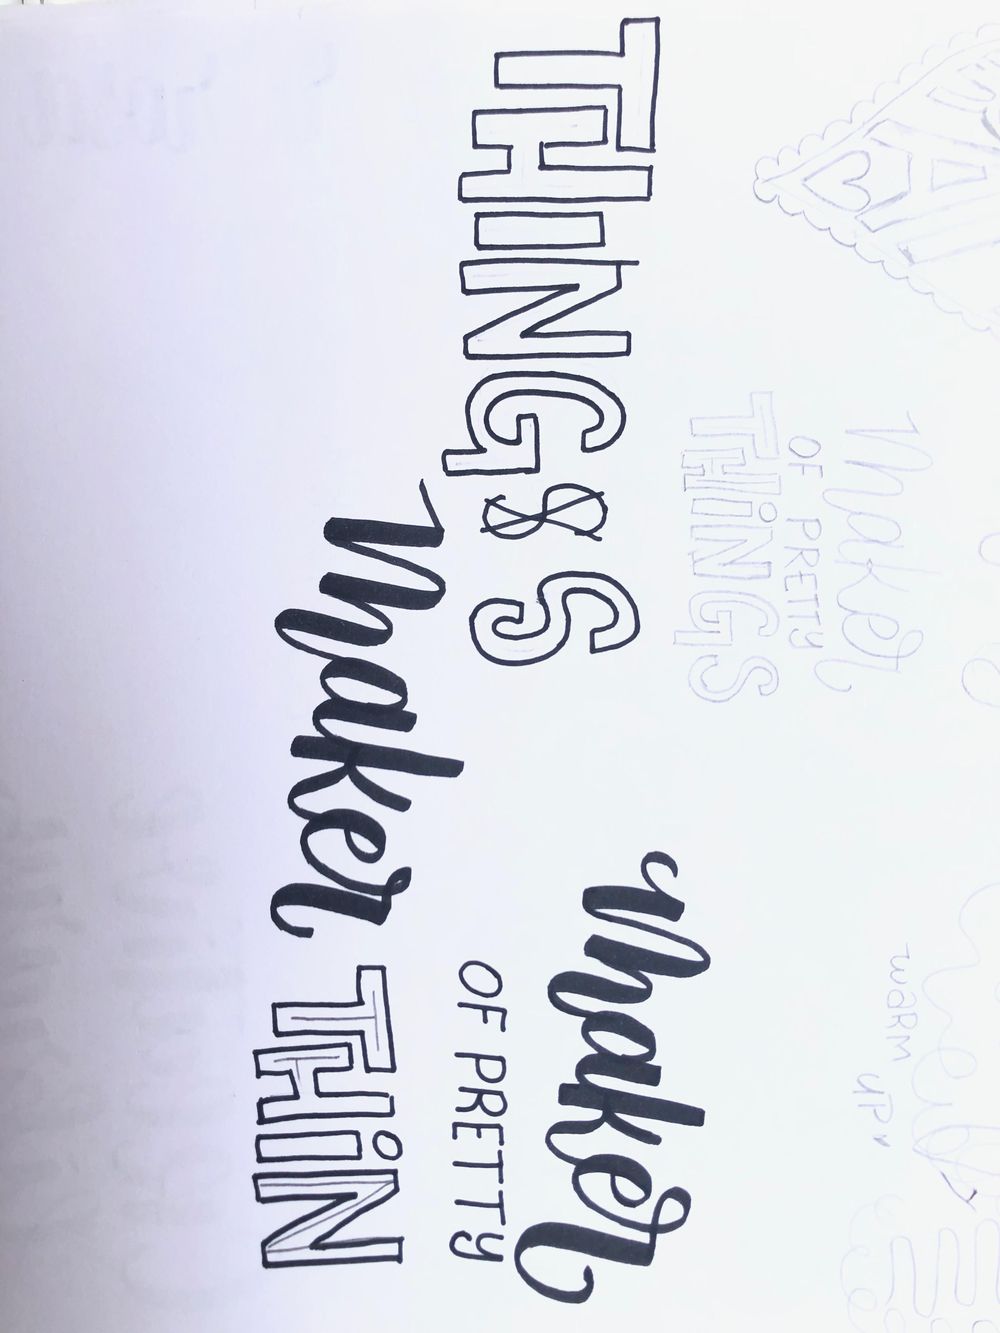 warm up
Maker
OF PRETTY
THiNGS
Maker
OF PRETTY
THING & S
Maker
THiN